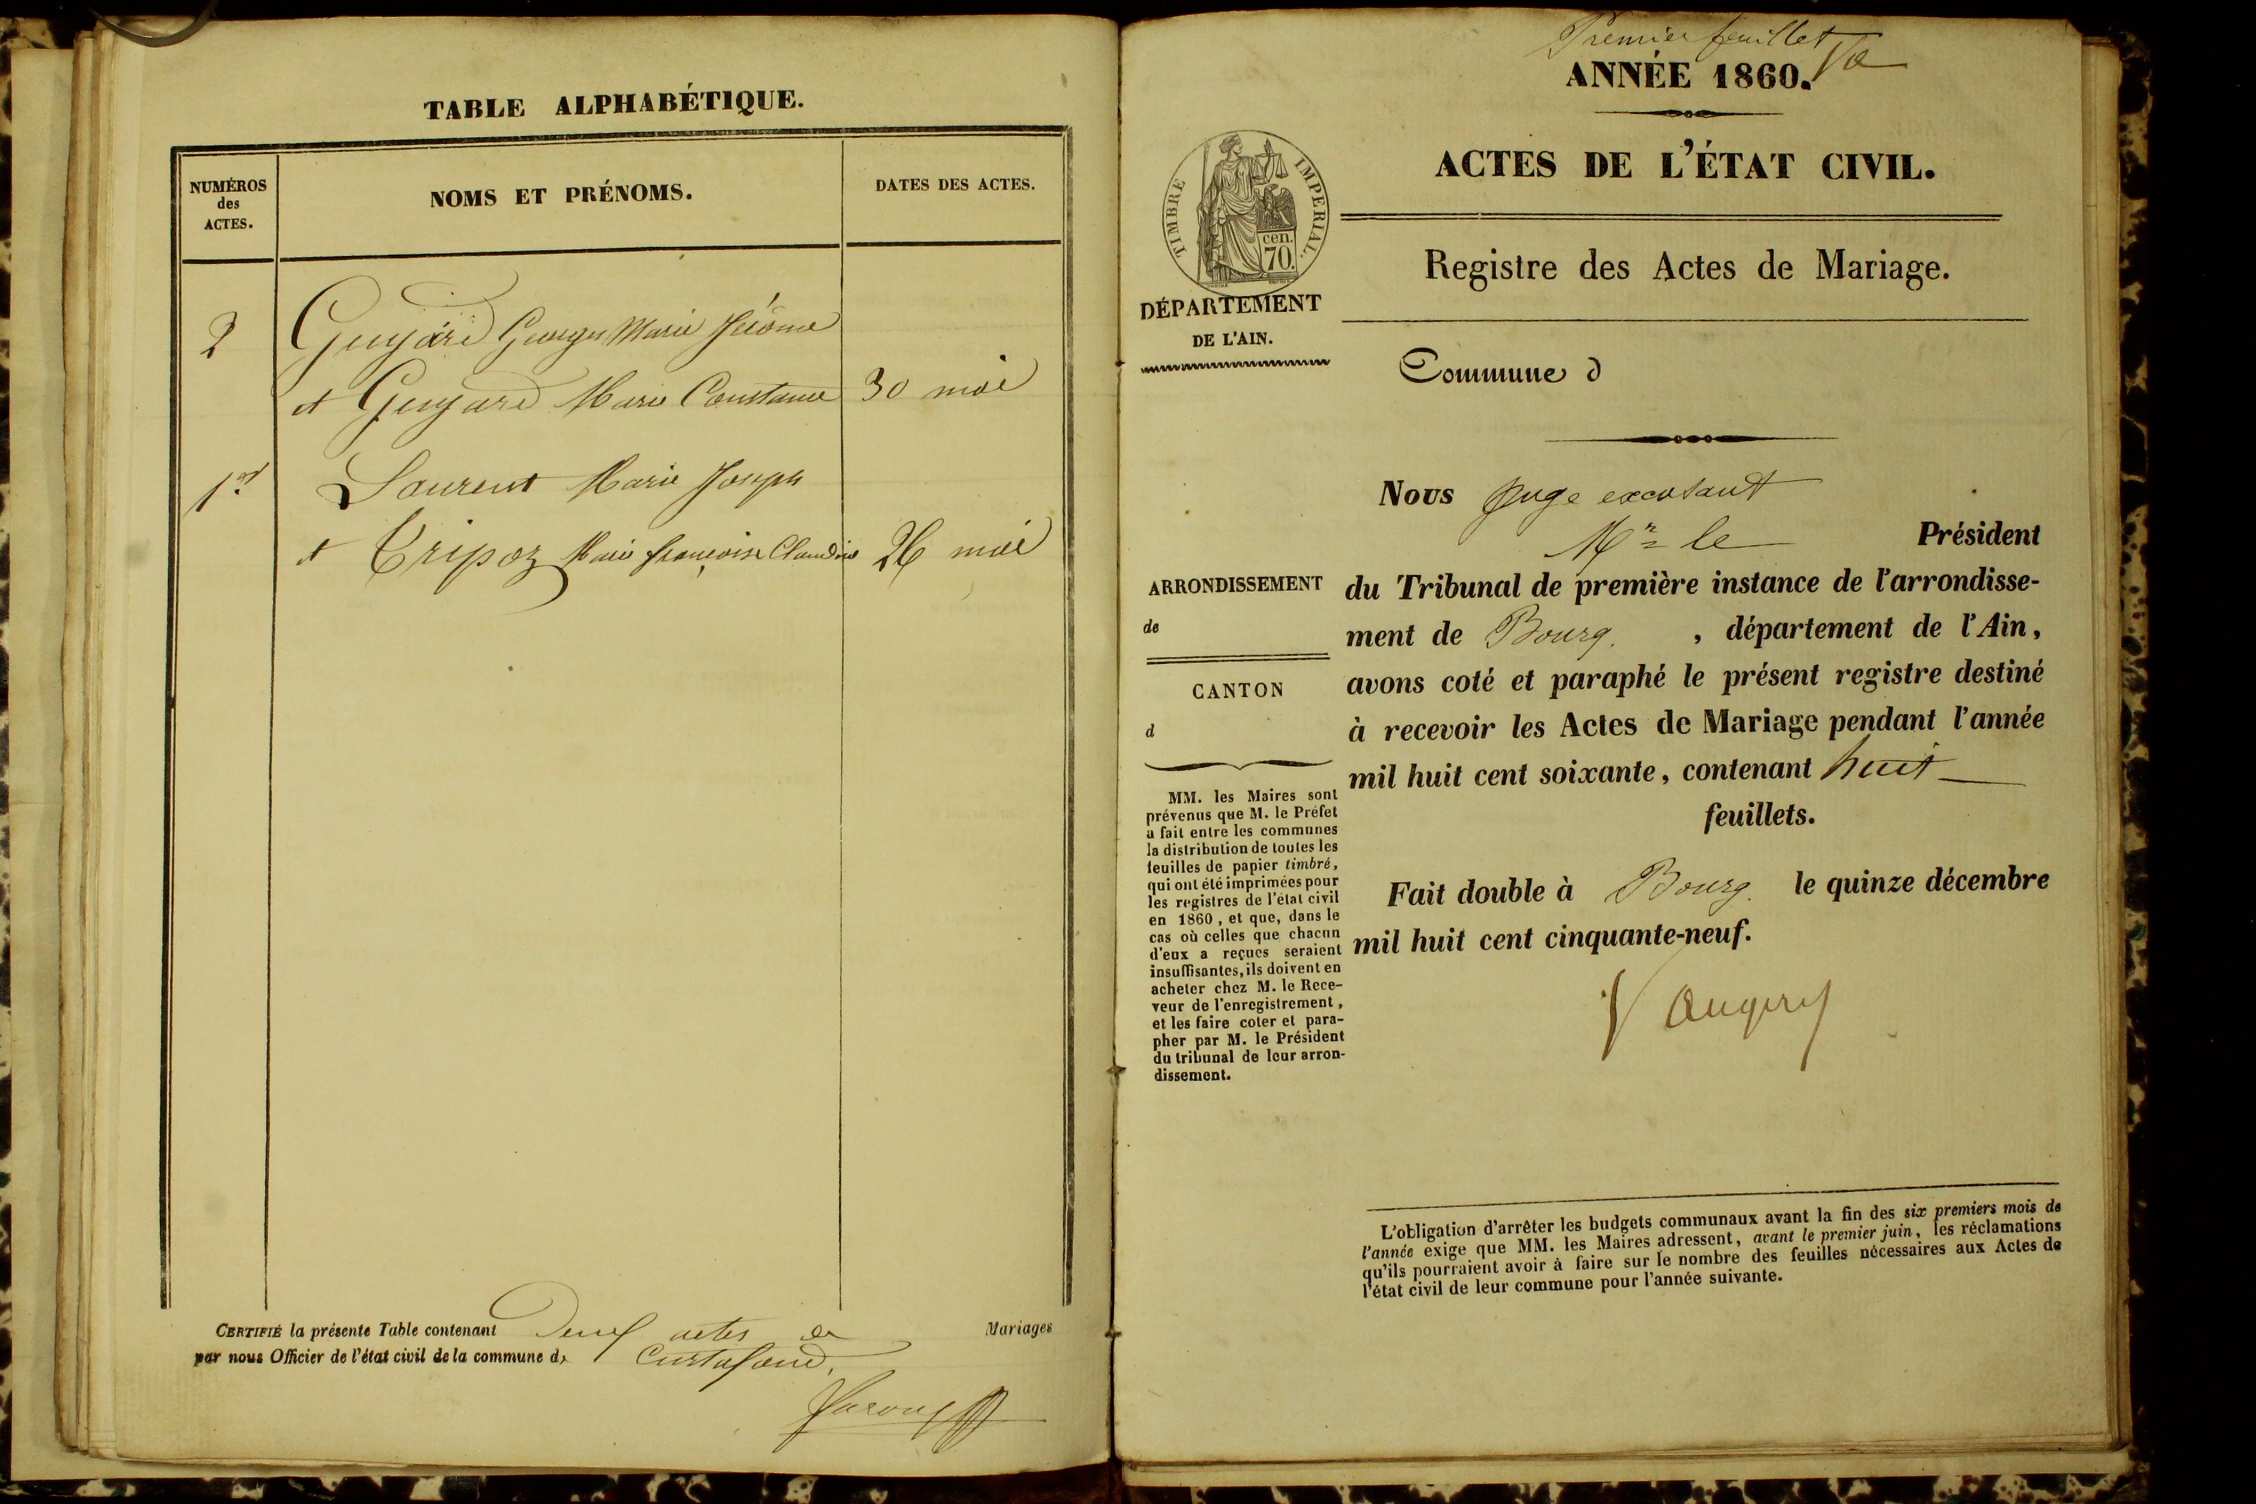 TABLE ALPHABÉTIQUE.
NUMÉROS
des
ACTES.
NOMS ET PRÉNOMS.
DATES DES ACTES.
2
Guyard Georges Marie Jérôme
et Guyard Marie Constance 30 mai
1er
Laurent Marie Joseph
et Tripoz Marie françoise Claudine 26 mai
CERTIFIÉ la présente Table contenant Deux actes de Mariages
par nous Officier de l'état civil de la commune de Curtafond.
Premier feuillet
ANNÉE 1860.
ACTES DE L'ÉTAT CIVIL.
TIMBRE IMPERIAL.
cen.
70.
Registre des Actes de Mariage.
DÉPARTEMENT
DE L'AIN.
Commune d
Nous juge excusant
Mr le Président
ARRONDISSEMENT
de
CANTON
d
du Tribunal de première instance de l'arrondisse-
ment de Bourg. , département de l'Ain,
avons coté et paraphé le présent registre destiné
à recevoir les Actes de Mariage pendant l'année
mil huit cent soixante, contenant huit
feuillets.
MM. les Maires sont
prévenus que M. le Préfet
a fait entre les communes
la distribution de toutes les
feuilles de papier timbré,
qui ont été imprimées pour
les registres de l'état civil
en 1860, et que, dans le
cas où celles que chacun
d'eux a reçues seraient
insuffisantes, ils doivent en
acheter chez M. le Rece-
veur de l'enregistrement,
et les faire coter et para-
pher par M. le Président
du tribunal de leur arron-
dissement.
Fait double à Bourg. le quinze décembre
mil huit cent cinquante-neuf.
L'obligation d'arrêter les budgets communaux avant la fin des six premiers mois de
l'année exige que MM. les Maires adressent, avant le premier juin, les réclamations
qu'ils pourraient avoir à faire sur le nombre des feuilles nécessaires aux Actes de
l'état civil de leur commune pour l'année suivante.